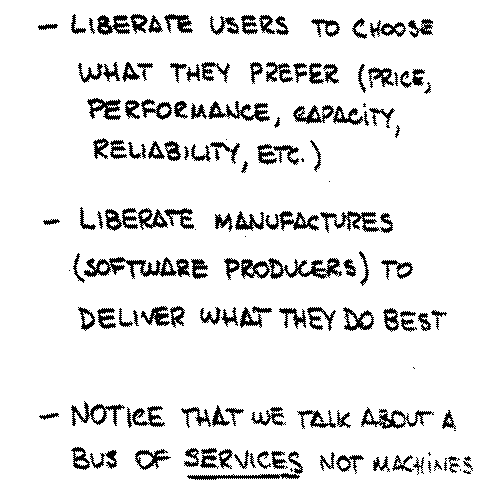 – LIBERATE USERS TO CHOOSE
WHAT THEY PREFER (PRICE,
PERFORMANCE, CAPACITY,
RELIABILITY, ETC.)
– LIBERATE MANUFACTURES
(SOFTWARE PRODUCERS) TO
DELIVER WHAT THEY DO BEST
– NOTICE THAT WE TALK ABOUT A
BUS OF SERVICES NOT MACHINES